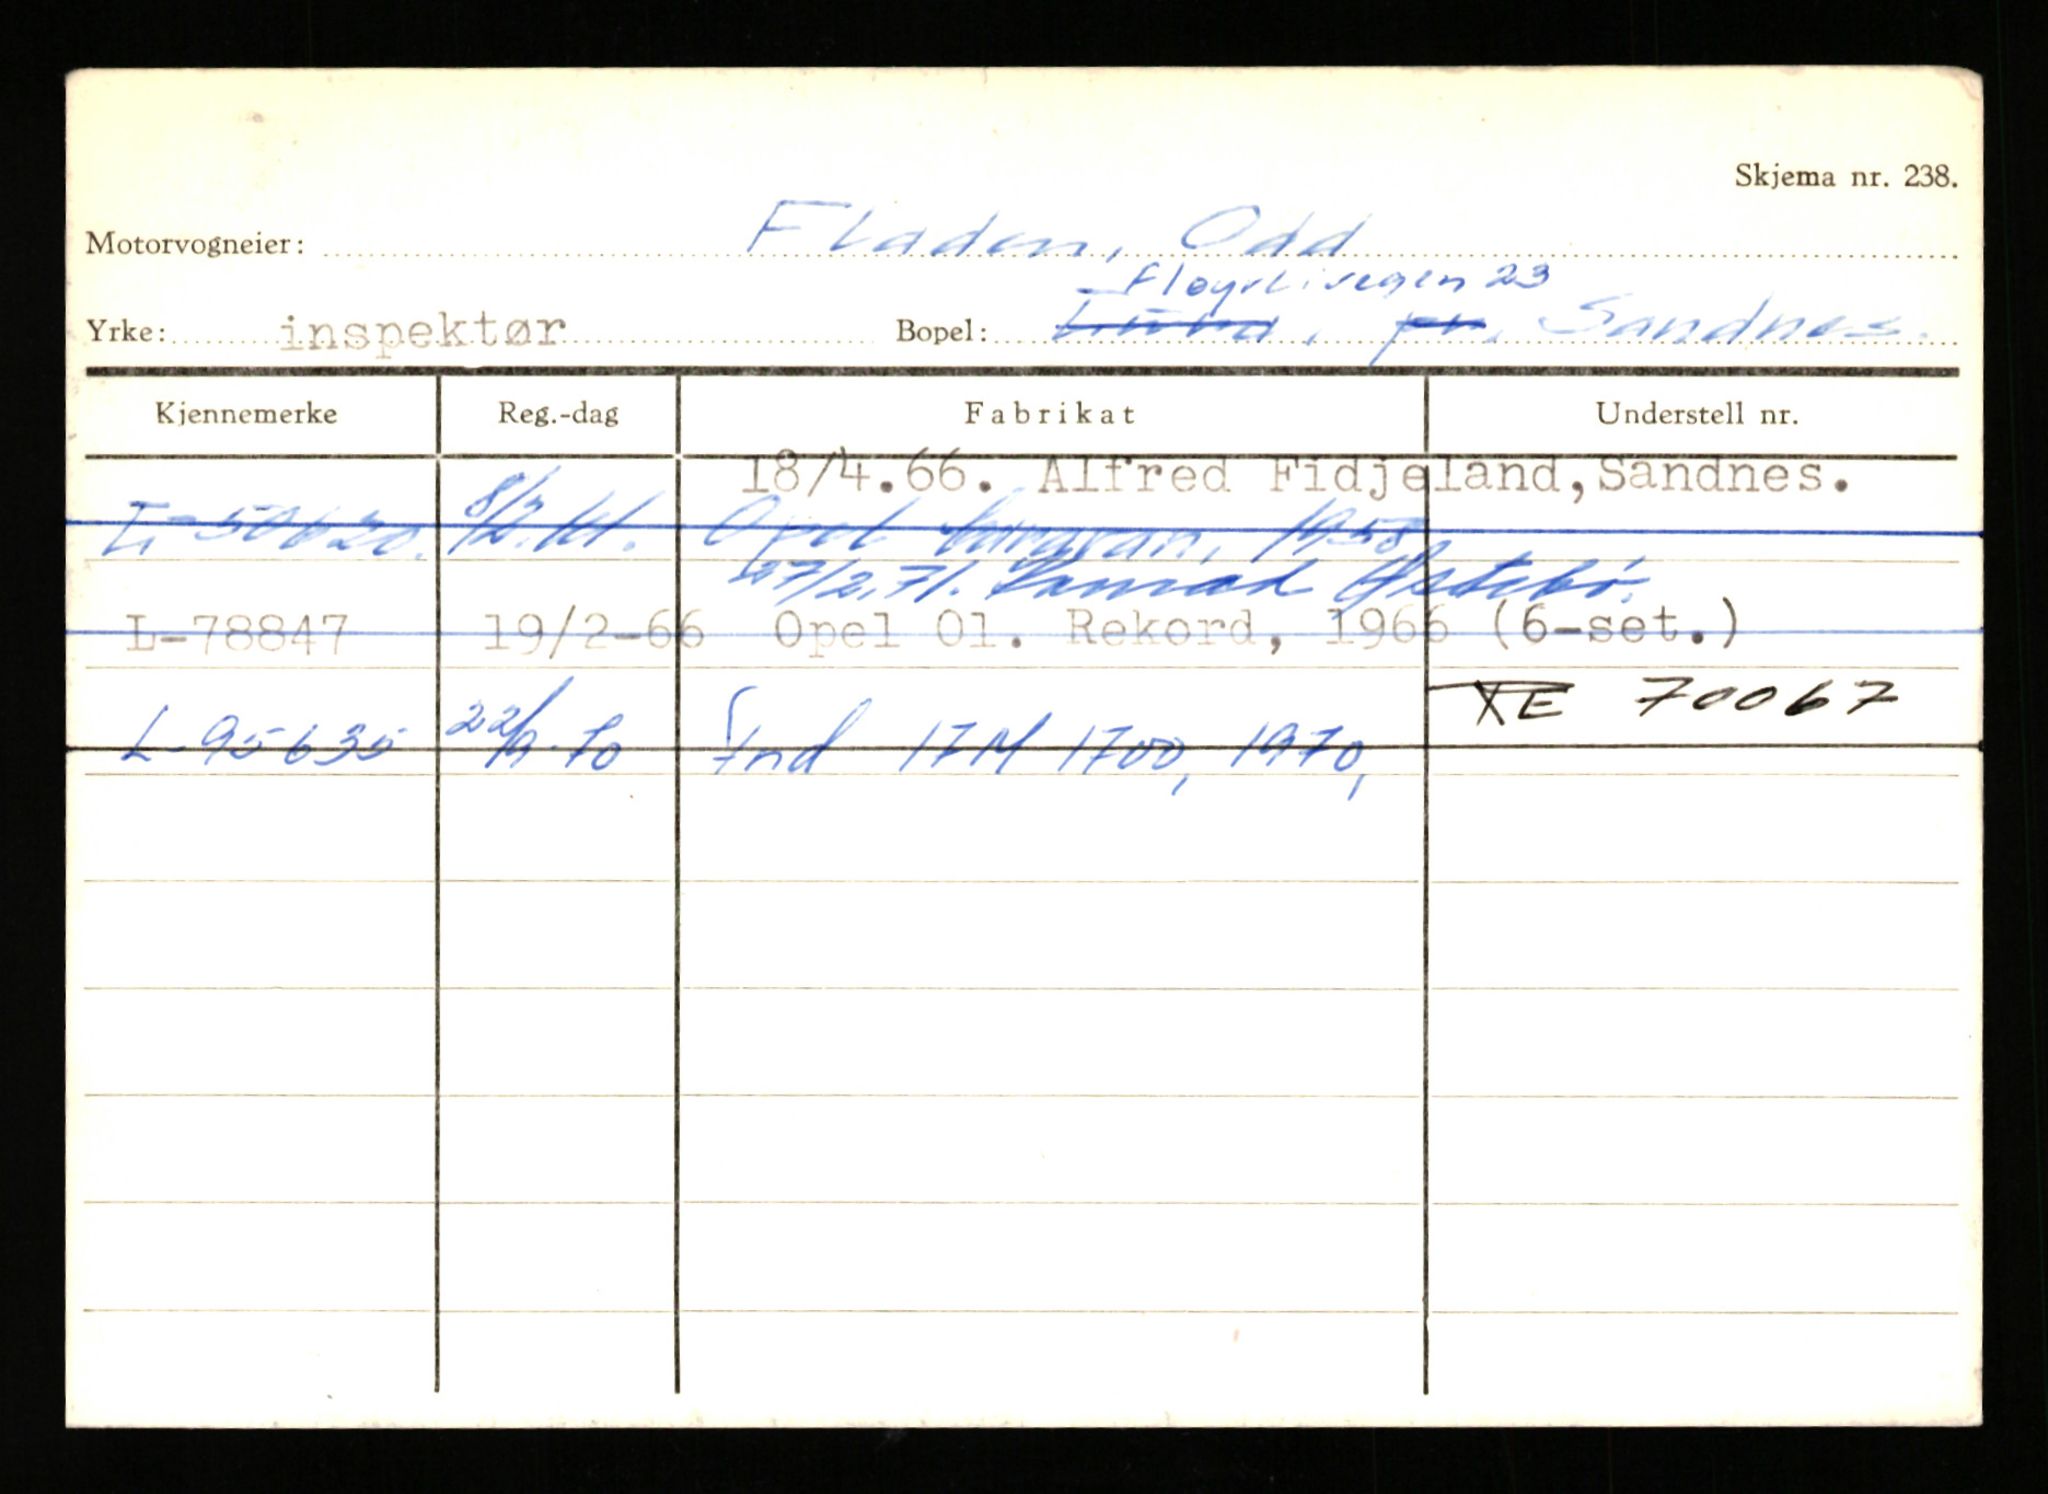 Skjema nr. 238.
Motorvogneier: Fladen, Odd
Fløyrlivegen 23
Yrke: inspektør Bopel: pr. Sandnes.
Kjennemerke Reg.-dag Fabrikat Understell nr.
18/4.66. Alfred Fidjeland, Sandnes.
L-50620. Opel Caravan, 1958
27/2.71. Konrad Østebø.
L-78847 19/2-66 Opel Ol. Rekord, 1966 (6-set.)
XE 70067
L-95635 22/9-70 Ford 17M 1700, 1970,